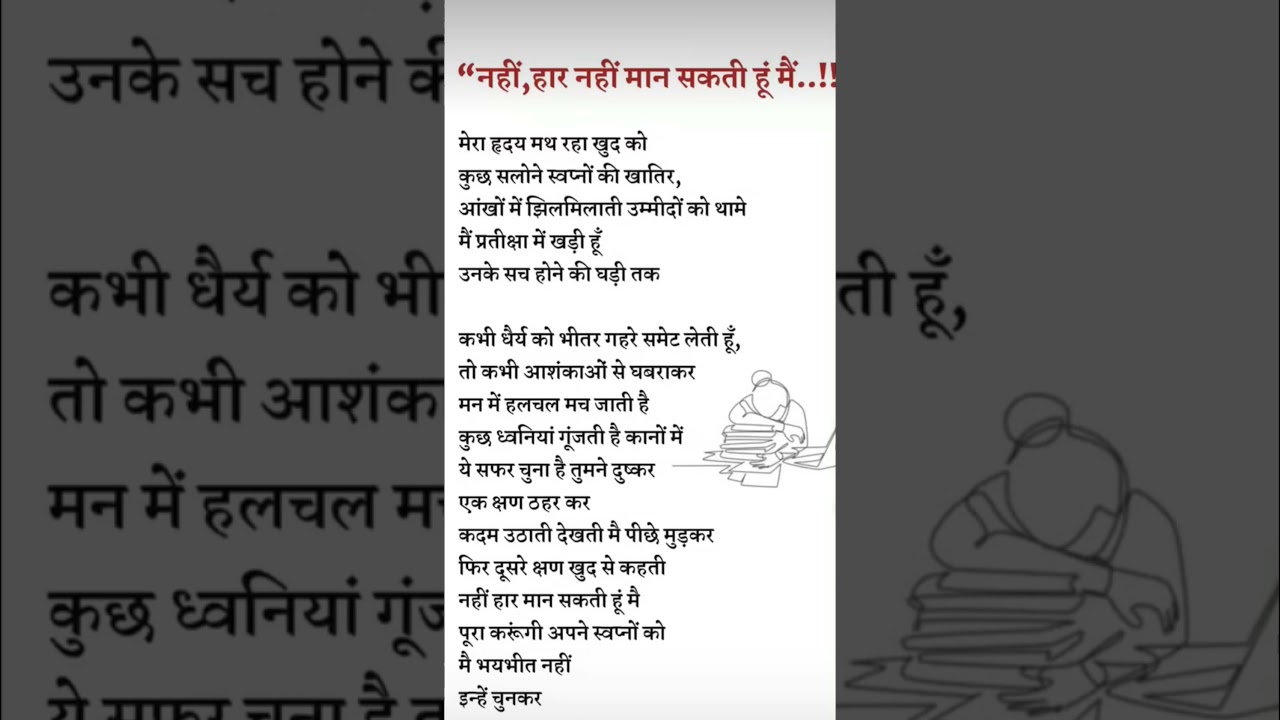 “नहीं,हार नहीं मान सकती हूं मैं..!!
मेरा हृदय मथ रहा खुद को
कुछ सलोने स्वप्नों की खातिर,
आंखों में झिलमिलाती उम्मीदों को थामे
मैं प्रतीक्षा में खड़ी हूँ
उनके सच होने की घड़ी तक
कभी धैर्य को भीतर गहरे समेट लेती हूँ,
तो कभी आशंकाओं से घबराकर
मन में हलचल मच जाती है
कुछ ध्वनियां गूंजती है कानों में
ये सफर चुना है तुमने दुष्कर
एक क्षण ठहर कर
कदम उठाती देखती मै पीछे मुड़कर
फिर दूसरे क्षण खुद से कहती
नहीं हार मान सकती हूं मै
पूरा करूंगी अपने स्वप्नों को
मै भयभीत नहीं
इन्हें चुनकर